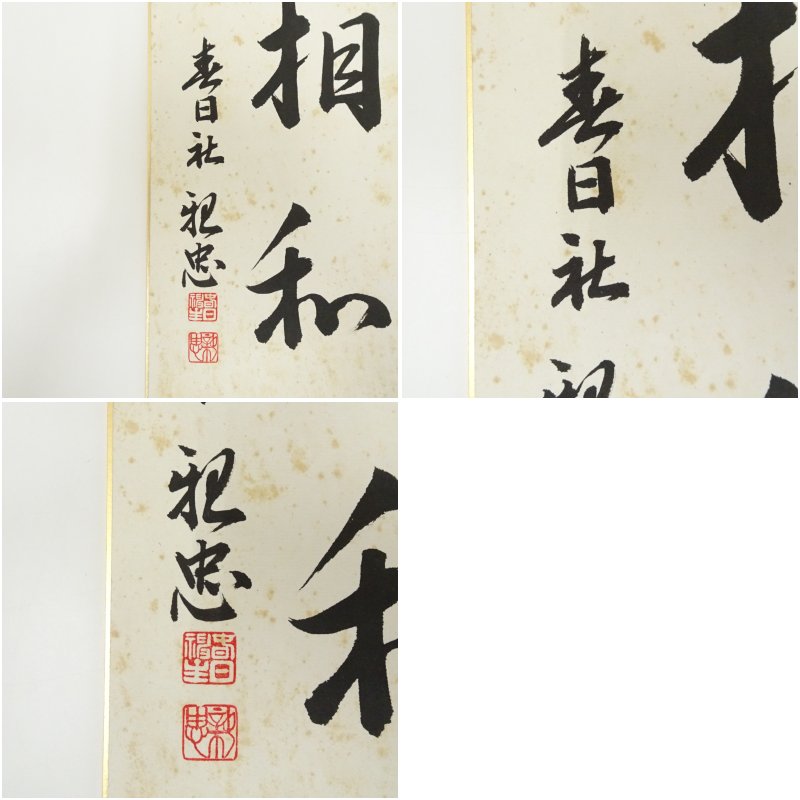 相和
春日社 親忠
春日社
親忠